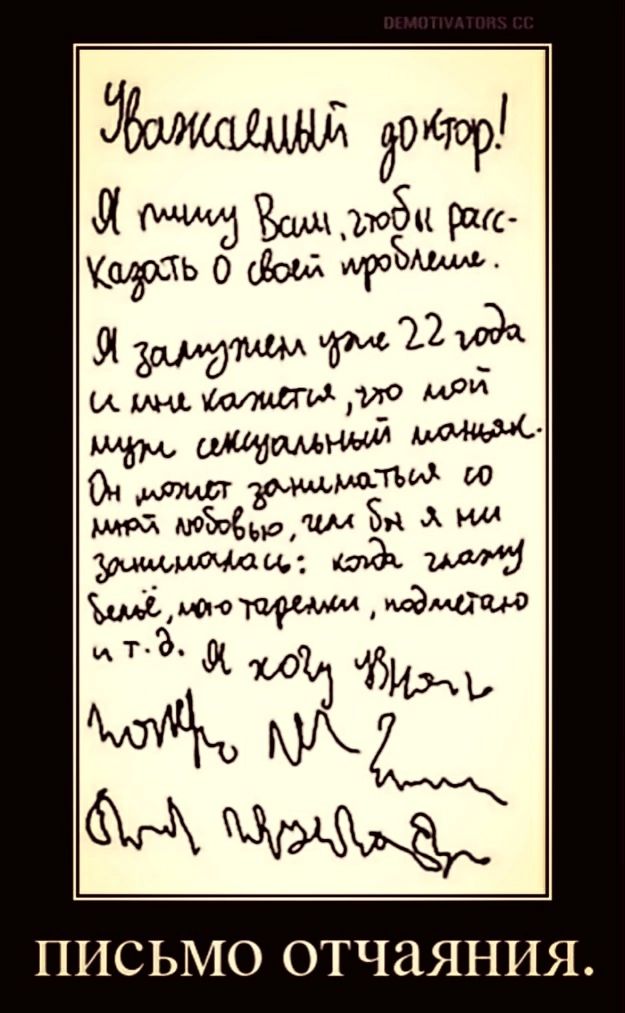 DEMOTIVATORS CC
Уважаемый доктор!
Я пишу Вам, чтобы расс-
казать о своей проблеме.
Я замужем уже 22 года
и мне кажется, что мой
муж сексуальный маньяк.
Он может заниматься со
мной любовью, чем бы я ни
занималась: когда глажу
бельё, мою тарелки, подметаю
и т.д. Я хочу узнать
письмо отчаяния.